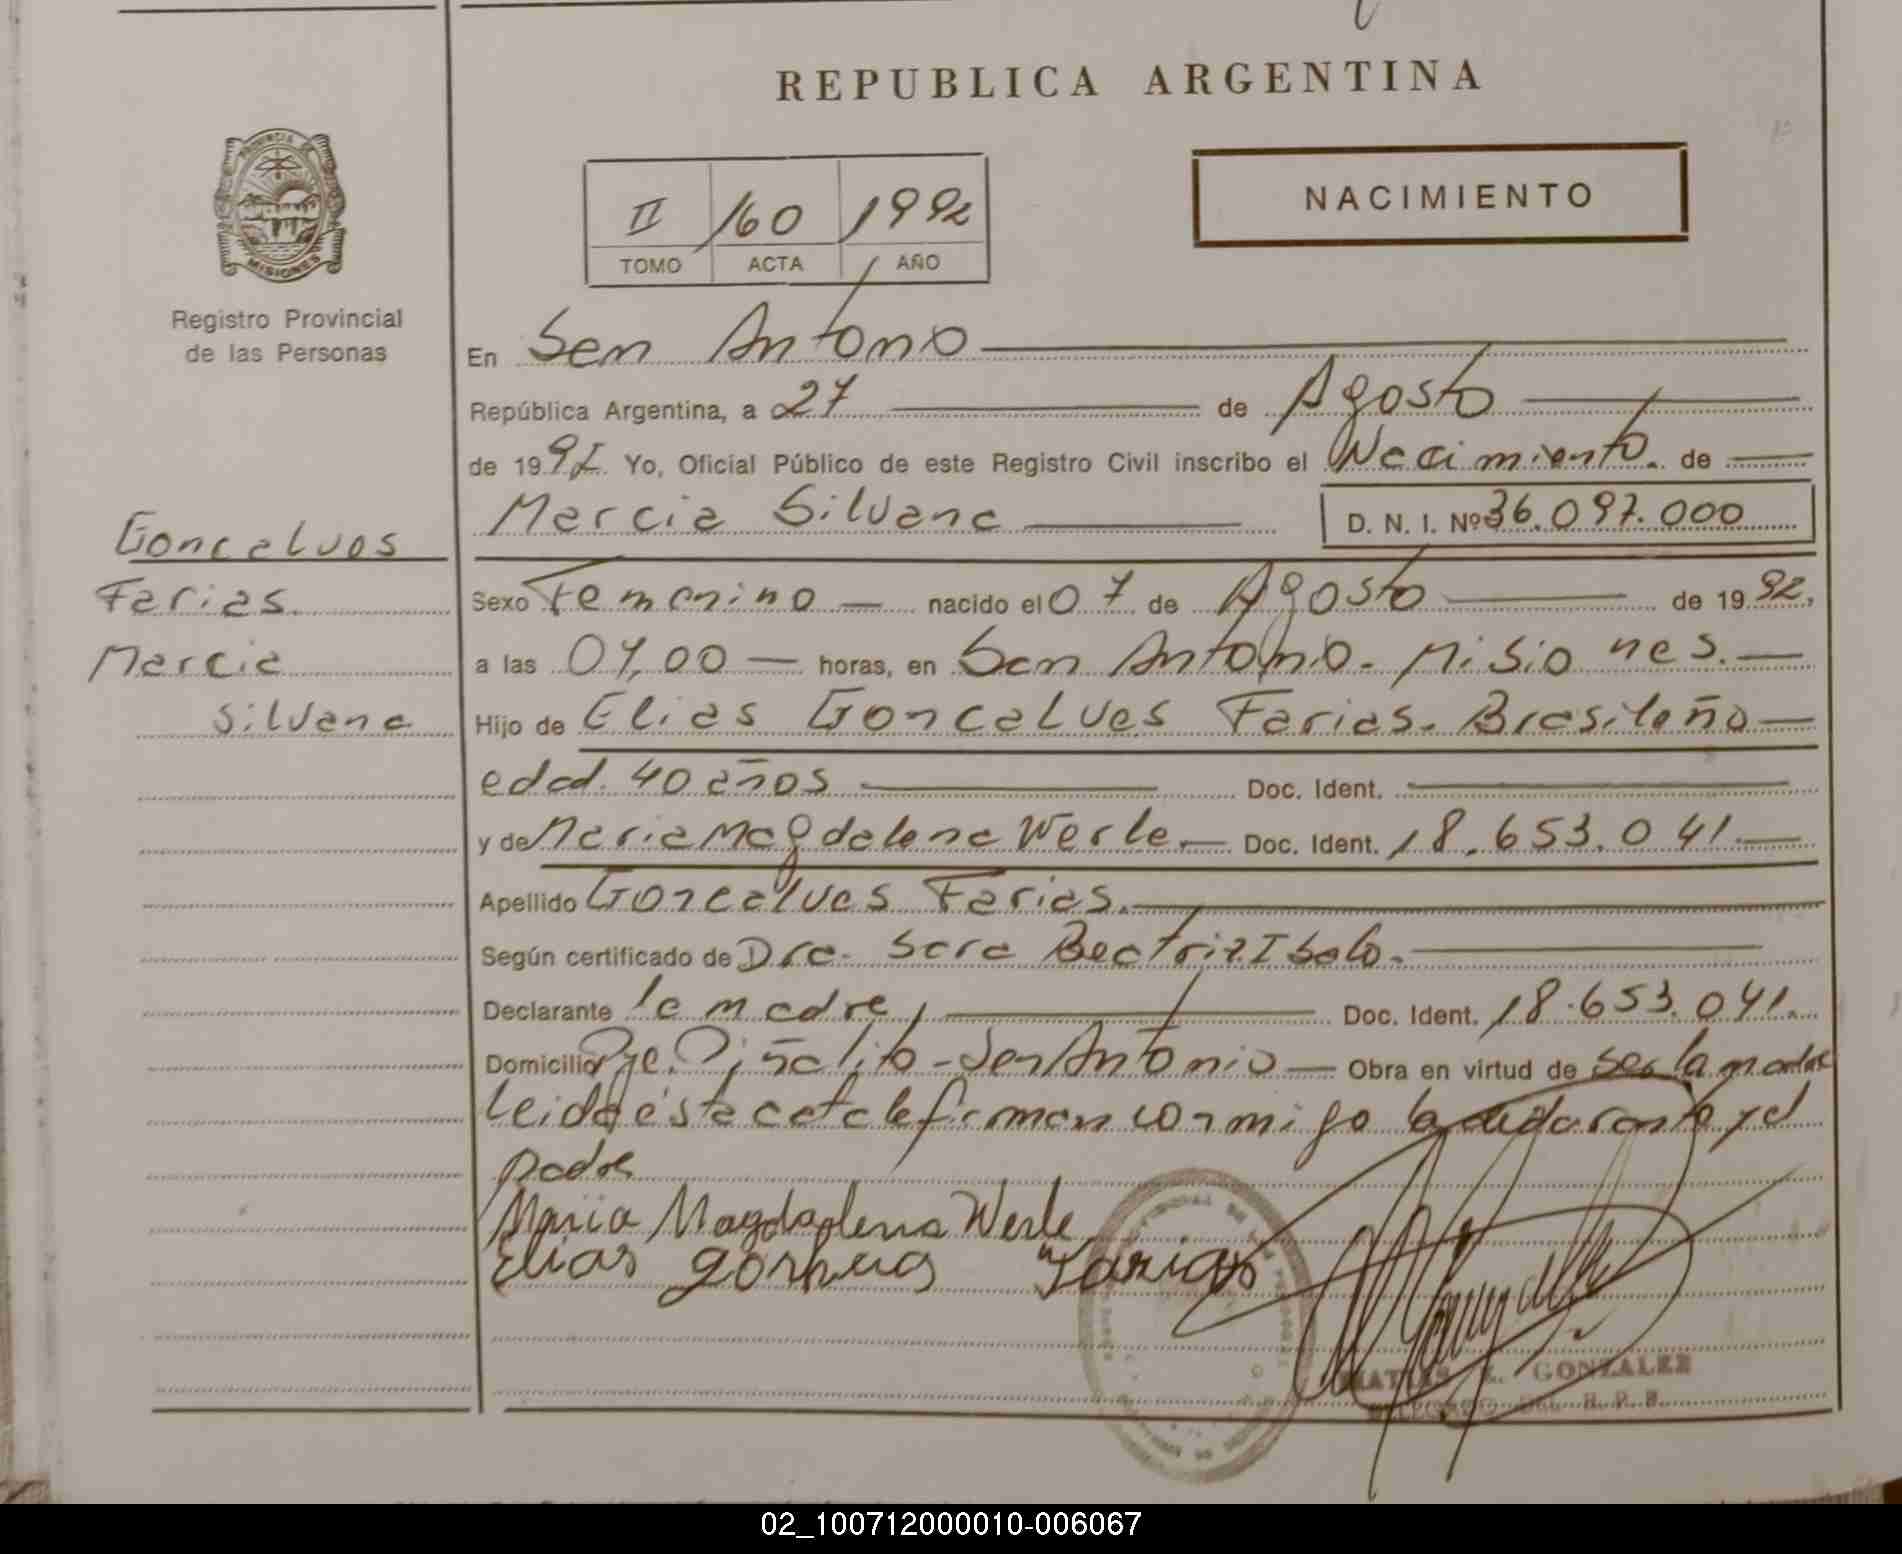 REPUBLICA ARGENTINA
PROVINCIA DE
MISIONES
Registro Provincial
de las Personas
NACIMIENTO
II 160 1992
TOMO ACTA AÑO
En San Antonio
República Argentina, a 27 de Agosto
de 1992 Yo, Oficial Público de este Registro Civil inscribo el Nacimiento. de
Marcia Silvana D. N. I. Nº 36.097.000
Goncalves
Farias
Marcia
Silvana
Sexo Femenino nacido el 07 de Agosto de 1992,
a las 07,00 horas, en San Antonio. Misiones.
Hijo de Elias Goncalves Farias. Brasileño
edad. 40 años Doc. Ident.
y de Maria Magdalena Werle. Doc. Ident. 18.653.041.
Apellido Goncalves Farias.
Según certificado de Dra. Sara Beatriz
Declarante la madre, Doc. Ident. 18.653.041.
Domicilio Pje. Piñalito - San Antonio Obra en virtud de ser la madre
Leida ésta acta la firman conmigo la declarante y el
padre
Maria Magdaglena Werle
Elias Farias
GONZALEZ
DELEGADO DEL R. P. P.
02_100712000010-006067